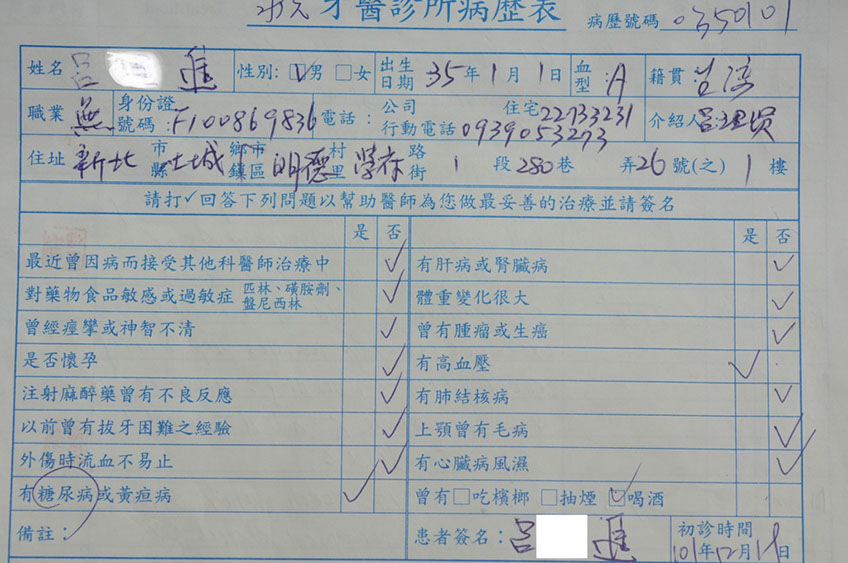 牙醫診所病歷表 病歷號碼 0350101
姓名 呂 進 性別: ☑男 □女 出生日期 35年1月1日 血型: A 籍貫:
職業 無 身份證號碼: F100869836 電話: 公司 住宅 22733231 行動電話 0939053273 介紹人
住址 新北 市縣 土城 鄉市鎮區 明德 村里 學府 路街 1 段 280 巷 弄 26 號(之) 1 樓
請打✓回答下列問題以幫助醫師為您做最妥善的治療並請簽名
是 否 是 否
最近曾因病而接受其他科醫師治療中 ✓ 有肝病或腎臟病 ✓
對藥物食品敏感或過敏症 匹林、磺胺劑、盤尼西林 ✓ 體重變化很大 ✓
曾經痙攣或神智不清 ✓ 曾有腫瘤或生癌 ✓
是否懷孕 ✓ 有高血壓 ✓
注射麻醉藥曾有不良反應 ✓ 有肺結核病 ✓
以前曾有拔牙困難之經驗 ✓ 上顎曾有毛病 ✓
外傷時流血不易止 ✓ 有心臟病風濕 ✓
有糖尿病或黃疸病 ✓ 曾有 □吃檳榔 □抽煙 ☑喝酒
備註: 患者簽名: 呂 進 初診時間 101年12月1日